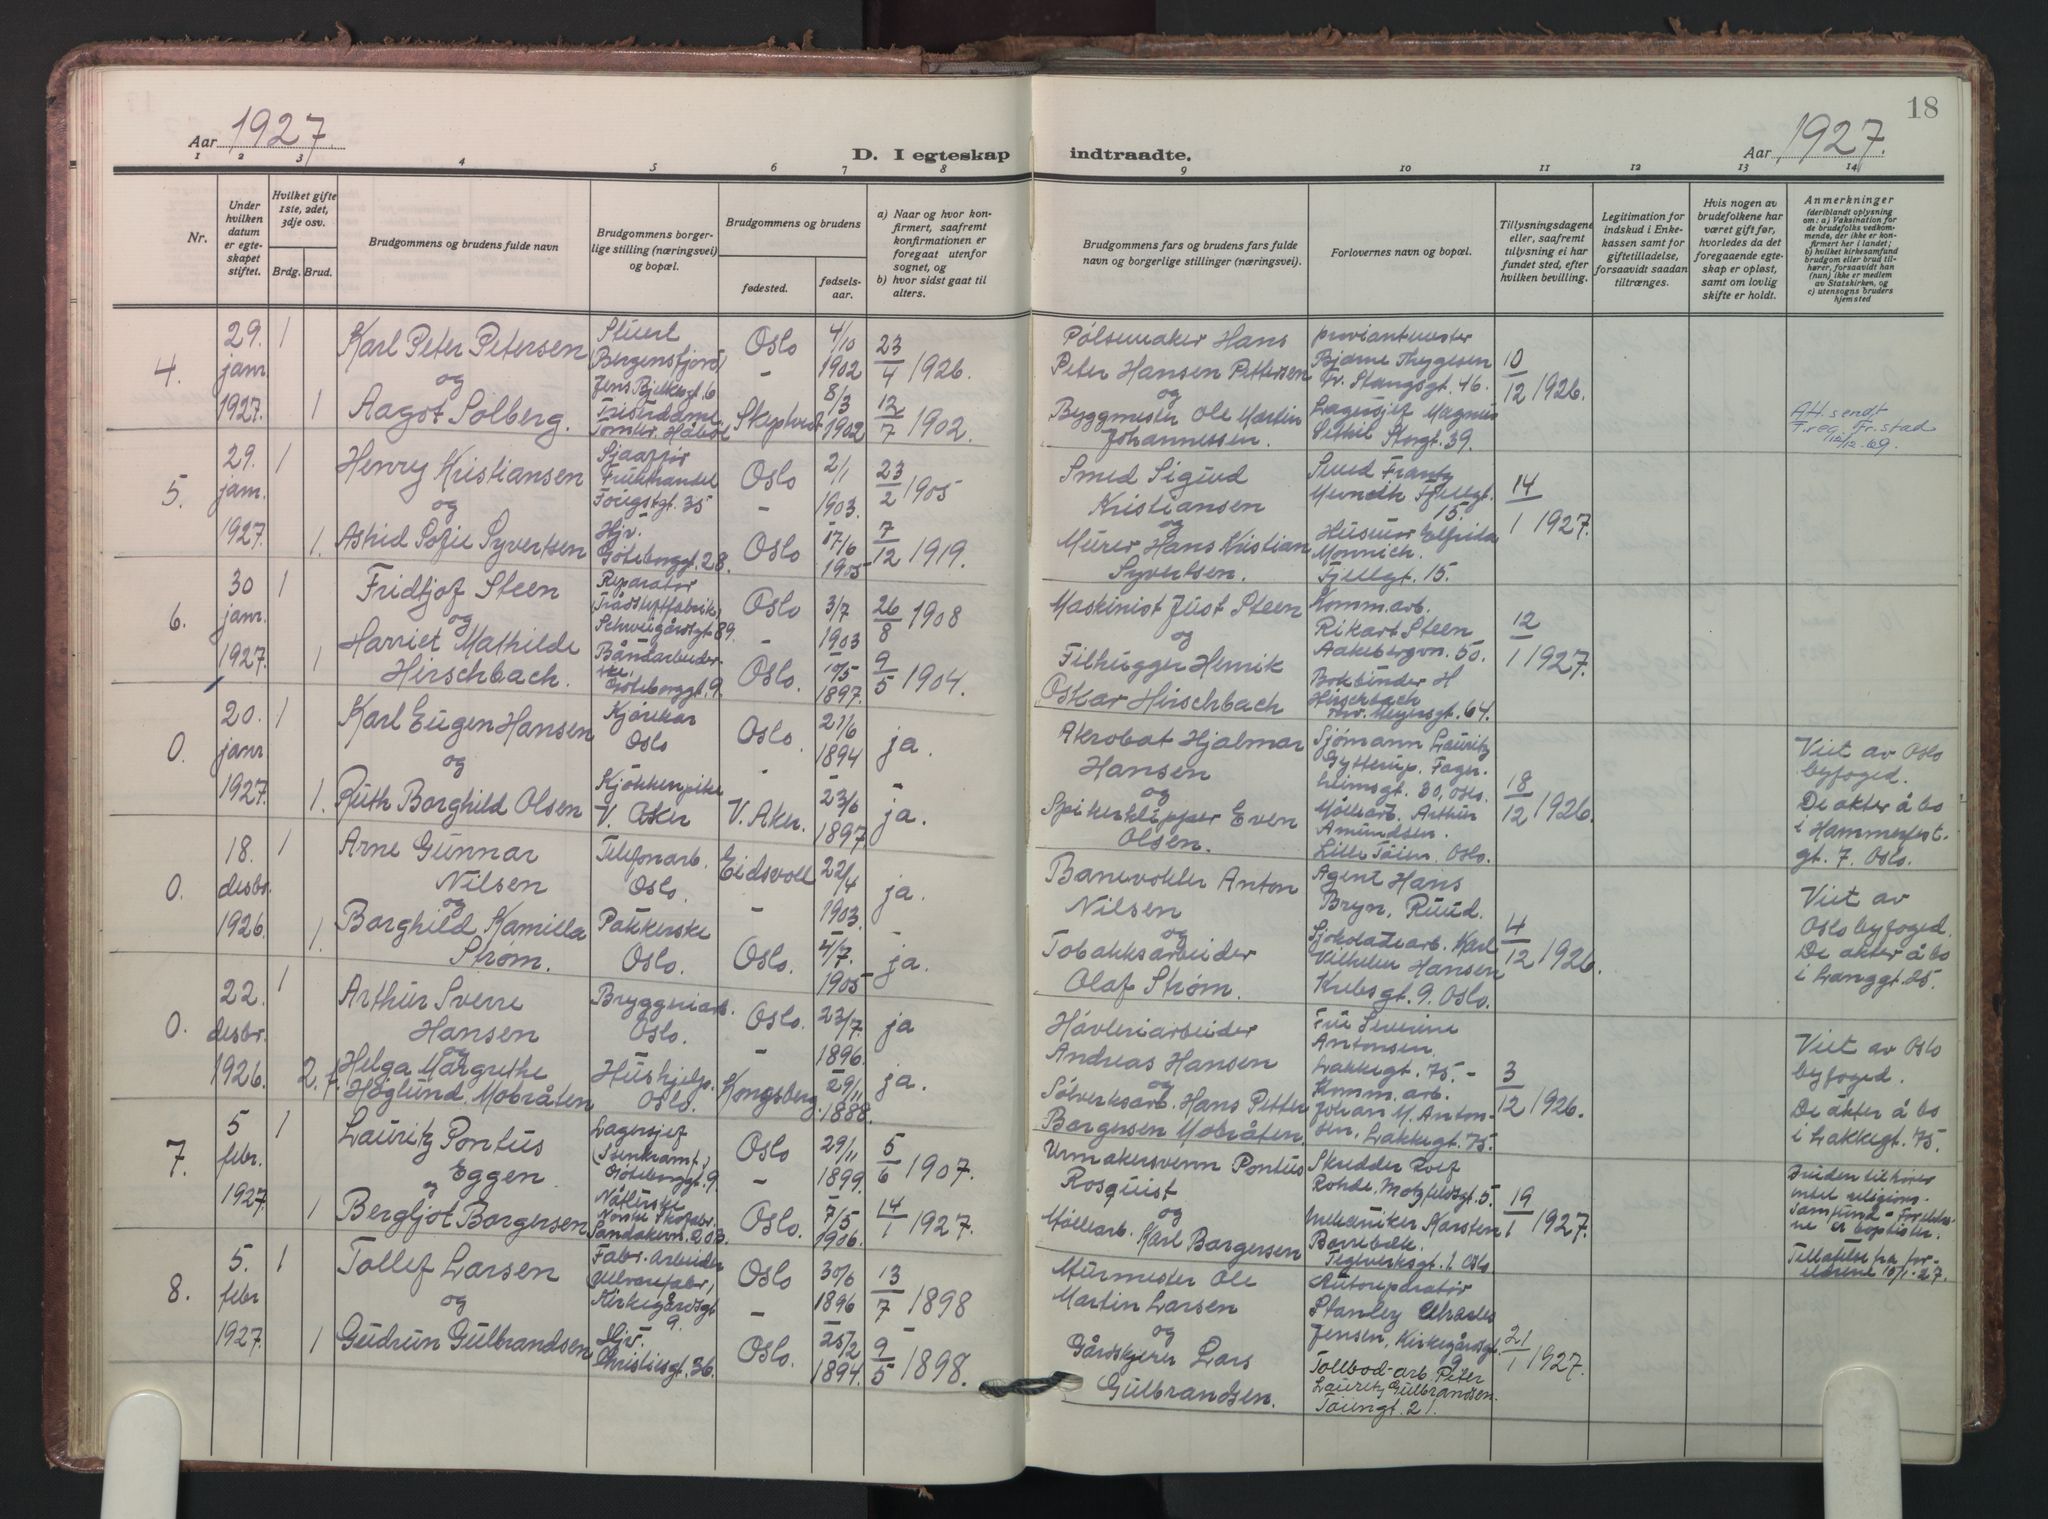 18
Aar 1927.
D. I egteskap indtraadte.
Aar 1927.
1 2 3 4 5 6 7 8 9 10 11 12 13 14
Nr.
Under hvilken datum er egteskapet stiftet.
Hvilket gifte 1ste, 2det, 3dje osv.
Brdg. Brud.
Brudgommens og brudens fulde navn
Brudgommens borgerlige stilling (næringsvei) og bopæl.
Brudgommens og brudens
fødested.
fødselsaar.
a) Naar og hvor konfirmert, saafremt konfirmationen er foregaat utenfor sognet, og
b) hvor sidst gaat til alters.
Brudgommens fars og brudens fars fulde navn og borgerlige stillinger (næringsvei).
Forlovernes navn og bopæl.
Tillysningsdagene eller, saafremt tillysning ei har fundet sted, efter hvilken bevilling.
Legitimation for indskud i Enkekassen samt for giftetilladelse, forsaavidt saadan tiltrænges.
Hvis nogen av brudefolkene har været gift før, hvorledes da det foregaaende egteskap er opløst, samt om lovlig skifte er holdt.
Anmerkninger
(deriblandt oplysning om: a) Vaksination for de brudefolks vedkommende, der ikke er konfirmert her i landet; b) hvilket kirkesamfund brudgom eller brud tilhører, forsaavidt han (hun) ikke er medlem av Statskirken, og c) utensogns bruders hjemsted
4.
29. janr. 1927.
1
Karl Peter Petersen
og
1 Aagot Solberg.
Stuert
(Bergensfjord)
Jens Bjelkesgt. 6
Tomter Håbøl
Oslo
-
Skiptvet
4/10 1902
8/3 1902
23/4 1926.
12/7 1902.
Pølsemaker Hans
Peter Hansen Pettersen
og
Byggmester Ole Martin
Johannessen.
proviantmester
Bjarne Thygesen
Fr. Stangsgt. 46.
Lagersjef Magnus
Storgt. 39.
10/12 1926.
Att. sendt
Freg. Fr.stad
12/12.69.
5.
29. janr. 1927.
1
Henry Kristiansen
og
1. Astrid Sofie Syvertsen
Sjaafør
Frukthandel
35
Hjv.
Göteborggt. 28.
Oslo
-
Oslo
2/1 1903.
17/6 1905
23/2 1905
7/12 1919.
Smed Sigurd
Kristiansen
og
Murer Hans Kristian
Syvertsen.
Smed Frantz
Fjellgt.
15.
Husmor Elfrida
Monnich.
Fjellgt. 15.
14/1 1927.
6.
30 janr. 1927.
1
Fridtjof Steen
og
1 Harriet Mathilde
Hirschbach.
Reparatør
Schweigårdsgt. 89.
Båndarbeiderske,
Göteborggt. 9.
Oslo
-
Oslo.
3/7 1903
10/5 1897.
26/8 1908
9/5 1904.
Maskinist Just Steen
og
Filhugger Henrik
Oskar Hirschbach
Komm.arb.
Rikart Steen
Aakebergvn. 50.
Bokbinder H
Hirschbach
Meyersgt. 64.
12/1 1927.
0.
20. janr 1927.
1
Karl Eugen Hansen
og
1. Ruth Borghild Olsen
Kjørekar
Oslo
Kjøkkenpike
V. Aker
Oslo.
-
V. Aker.
21/6 1894
23/6 1897.
ja.
-
ja.
Akrobat Hjalmar
Hansen
og
Spikerklipper Even
Olsen.
Sjømann Lauritz
Gytterup. Fagerheimsgt. 30, Oslo.
Møllearb. Arthur
Amundsen.
Lille Tøien. Oslo.
18/12 1926.
Viet av Oslo
byfoged.
De akter å bo
i Hammerfestgt. 7. Oslo.
0.
18. desbr. 1926.
1
Arne Gunnar
Nilsen
og
1. Borghild Kamilla
Strøm.
Telefonarb.
Oslo.
Pakkerske
Oslo.
Eidsvoll
-
Oslo.
22/4 1903.
4/7. 1905
ja.
-
ja.
Banevokter Anton
Nilsen
og
Tobakksarbeider
Olaf Strøm.
Agent Hans
Bryn, Ruud.
Sjokoladearb. Karl
Vilhelm Hansen
Krebsgt. 9. Oslo.
4/12 1926.
Viet av
Oslo byfoged.
De akter å bo
i Langgt. 25.
0.
22. desbr. 1926.
1
Arthur Sverre
Hansen
og
2. Helga Margrethe
Höglund, f. Mobråten
Bryggeriarb.
Oslo.
Hushjelp.
Oslo.
Oslo.
-
Kongsberg
23/7. 1896
29/11 1888.
ja
ja.
Høvleriarbeider
Andreas Hansen
og
Sølvverksarb. Hans Petter
Borgersen Mobråten
Fru Severine
Antonsen.
Lakkegt. 75. -
Komm. arb.
Johan M. Antonsen, Lakkegt. 75.
3/12 1926.
Viet av Oslo
byfoged.
De akter å bo
i Lakkegt. 75.
7.
5 febr. 1927
1
Lauritz Pontus
Eggen
og
1 Bergljot Borgersen
Lagersjef
(Isenkramf.)
Göteborggt. 9
Nåtlerske
Norsk Skofabr.
Sandakervn. 20B.
Oslo
-
Oslo.
29/11 1899.
7/5 1906.
5/6 1907.
14/1 1927.
Urmakersvenn Pontus
Rosquist
og
Møllearb. Karl Borgersen
Skredder Rolf
Rohde, Motzfeldsgt. 5
Mekaniker Karsten
Teglverksgt. 1. Oslo
19/1 1927.
Bruden tilhører
intet religionssamfund - Foreldrene er baptister.
Tillatelse fra foreldrene 10/1-27.
8.
5. febr 1927.
1
Tollef Larsen
og
1 Gudrun Gulbrandsen
Fabr. arbeider
(Uldvarefabr.)
Kirkegårdsgt
9.
Hjv.
Christiesgt. 36.
Oslo
-
Oslo.
30/6 1896
25/2 1894.
13/7 1898
9/5 1898.
Murmester Ole
Martin Larsen
og
Gårdskjører Lars
Gulbrandsen.
Autoreparatør
Stanley Charles
Jensen, Kirkegårdsgt.
9
Tollbod-arb. Peter
Lauritz Gulbrandsen.
Tøiengt. 21.
21/1 1927.